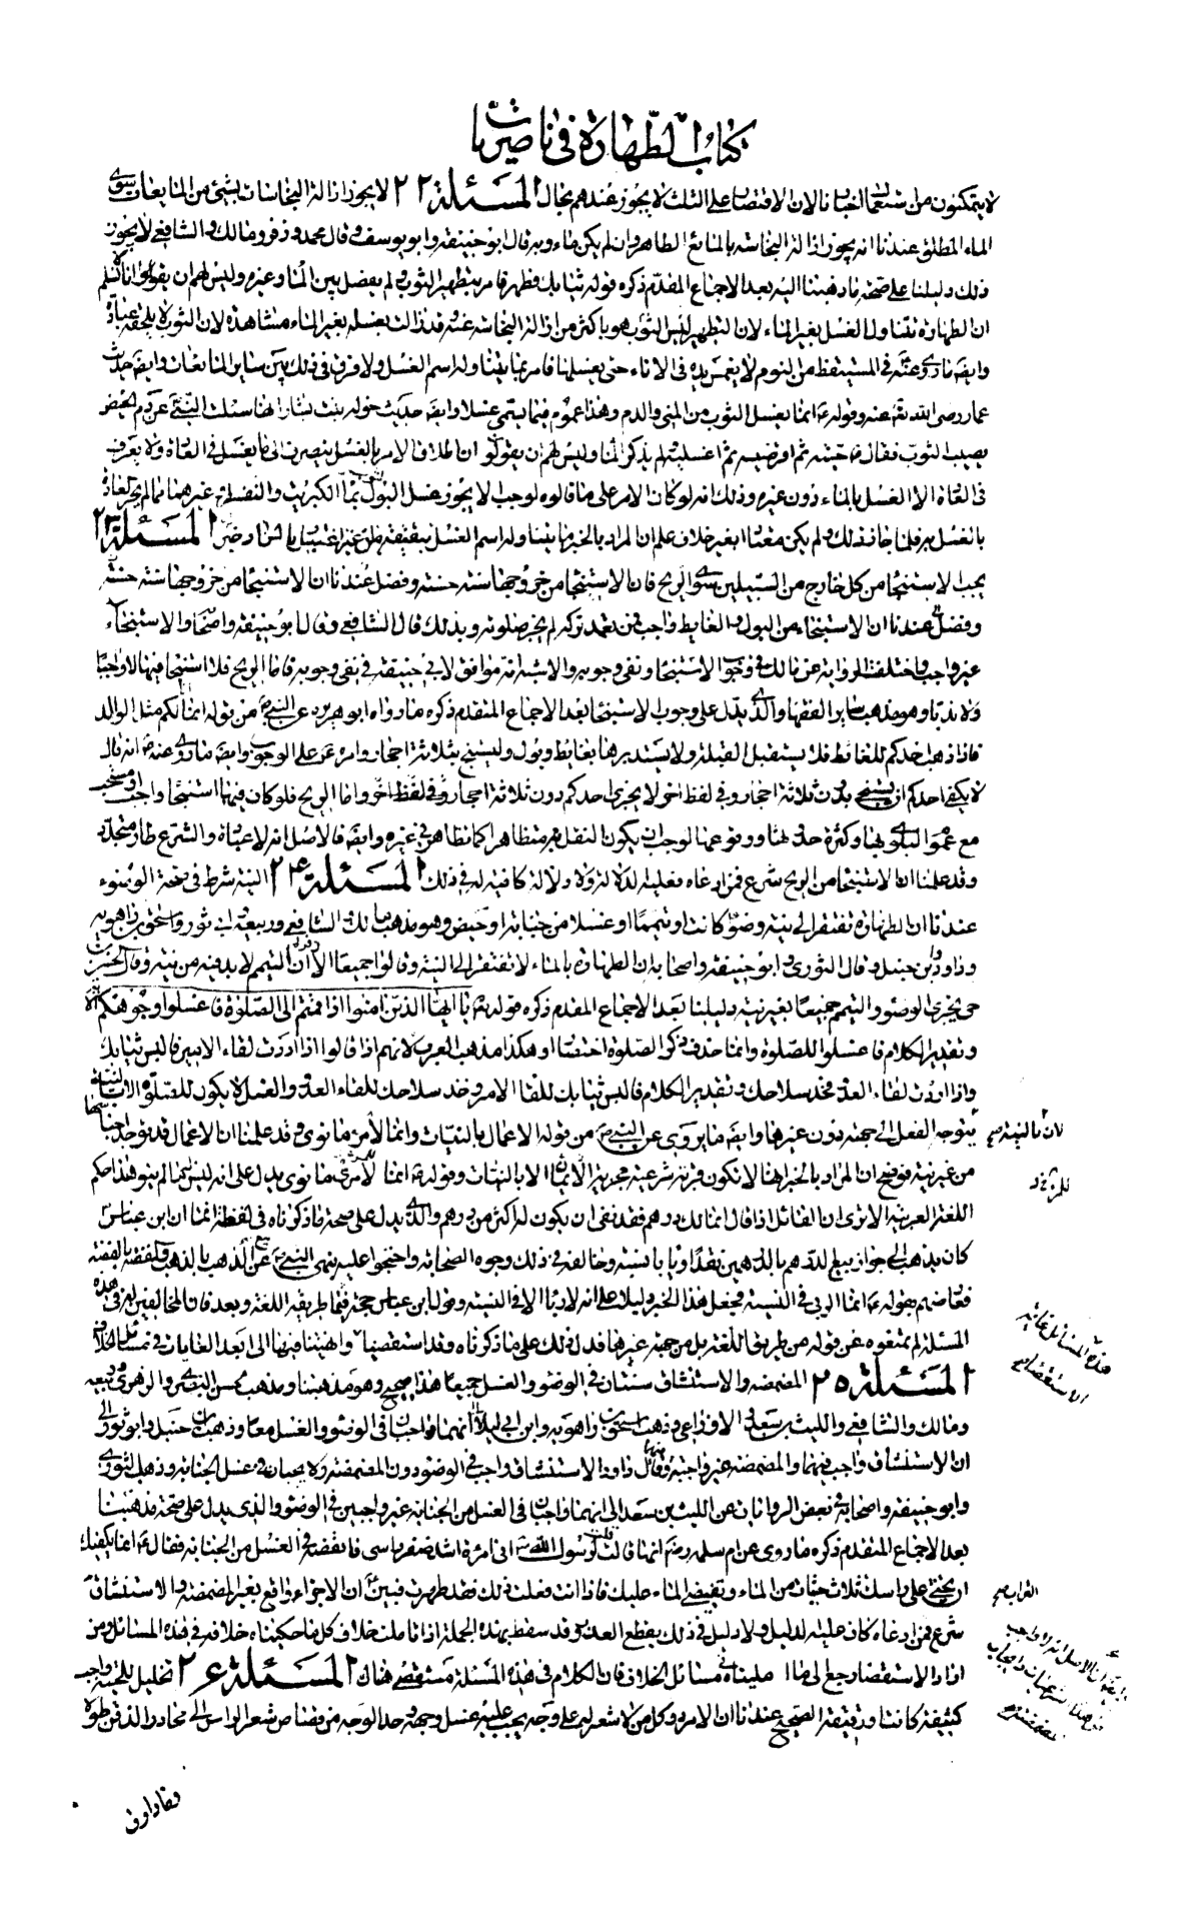 كتاب الطهارة في ناصريات
لا يتمكنون من استعمال الخبر لأن الاقتصار على الثلث لا يجوز عندهم بحال المسئلة ٢٢ لا يجوز ازالة النجاسات بشيء من المايعات سوى
الماء المطلق عندنا انه يجوز ازالة النجاسة بالمايع الطاهر وان لم يكن ماء وبه قال ابو حنيفة وابو يوسف وقال محمد وزفر ومالك والشافعي لا يجوز
ذلك دليلنا على صحة ما ذهبنا اليه بعد الاجماع المقدم ذكره قوله تع وثيابك فطهر فامر بتطهير الثوب ولم يفصل بين الماء وغيره وليس لهم ان يقولوا انا لا نسلم
ان الطهارة تتناول الغسل بغير الماء لان التطهير ليس الثوب هو باكثر من ازالة النجاسة عنه وقد زالت بغسله بغير الماء مشاهدة لان الثوب لا يلحقه عبادة
وايضا ما روي عنه في المستيقظ من النوم لا يغمس يده في الاناء حتى يغسلها فامر بما يتناوله اسم الغسل ولا فرق في ذلك بين ساير المايعات وايضا حديث
عمار رضي الله تع عنه وقوله ع انما يغسل الثوب من المني والدم وهذا عموم فيما يسمى غسلا وايضا حديث خولة بنت يسار انها سئلت النبي عن دم الحيض
يصيب الثوب فقال حتيه ثم اقرضيه ثم اغسليه ولم يذكر الماء وليس لهم ان يقولوا ان اطلاق الامر بالغسل ينصرف الى ما يغسل في العادة ولا يعرف
في العادة الا الغسل بالماء دون غيره وذلك انه لو كان الامر على ما قالوه لوجب ان لا يجوز غسل الثوب بماء الكبريت والنفط وغيرهما مما لم يجر العادة
بالغسل به فلما جاز ذلك ولم يكن معتادا بغير خلاف علم ان المراد بالخبر ما يتناوله اسم الغسل حقيقة من غير اعتبار بالعادة المسئلة ٢٣
يجب الاستنجاء من كل خارج من السبيلين سوى الريح فان الاستنجاء من خروجها سنة حسنة وفصل عندنا ان الاستنجاء من خروجها سنة حسنة
وفصل عندنا ان الاستنجاء من البول والغايط واجب فمن تعمد تركه لم يجز صلوته وبذلك قال الشافعي وقال ابو حنيفة واصحابه الاستنجاء
غير واجب واختلفت الرواية عن مالك في وجوب الاستنجاء ونفي وجوبه والاشبه انه موافق لابي حنيفة في نفي وجوبه فاما الريح فلا استنجاء فيها لا واجبا
ولا ندبا وهو مذهب ساير الفقهاء والذي يدل على وجوب الاستنجاء بعد الاجماع المتقدم ذكره ما رواه ابو هريرة عن النبي من قوله انما انا لكم مثل الوالد
فاذا ذهب احدكم للغائط فلا يستقبل القبلة ولا يستدبرها بغايط وبول وليستنج بثلاثة احجار وامره ع على الوجوب وايضا ما روي عنه انه قال
لا يكفي احدكم ان يستنجي بدون ثلاثة احجار وفي لفظ اخر لا يجزي احدكم دون ثلاثة احجار وفي لفظ اخر واما الريح فلو كان فيها استنجاء واجب او مستحب
مع عموم البلوى بها وكثرة حدوثها ووقوعها لوجب ان يكون النقل به متظاهرا كما تظاهر في غيره وايضا فالاصل انه لا عبادة والشرع طار متجدد
وقد علمنا ان الاستنجاء من الريح شرع فمن ادعاه فعليه الدلالة ولا دلالة كافية له في ذلك المسئلة ٢٤ النية شرط في صحة الوضوء
عندنا ان الطهارة تفتقر الى نية وضوءا كانت او تيمما او غسلا من جنابة او حيض وهو مذهب مالك والشافعي وربيعة وابي ثور واسحق بن راهويه
وداود وابن حنبل وقال الثوري وابو حنيفة واصحابه ان الطهارة بالماء لا تفتقر الى النية وقالوا جميعا الا زفر ان التيمم لا بد فيه من نية وقال الحسن بن
حي يجزي الوضوء والتيمم جميعا بغير نية دليلنا بعد الاجماع المقدم ذكره قوله تع يا ايها الذين امنوا اذا قمتم الى الصلوة فاغسلوا وجوهكم الآية
وتقدير الكلام فاغسلوا للصلوة وانما حذف ذكر الصلوة اختصارا وهكذا مذهب العرب لانهم اذا قالوا اذا اردت لقاء الامير فالبس ثيابك
واذا اردت لقاء العدو فخذ سلاحك وتقدير الكلام فالبس ثيابك للقاء الامير وخذ سلاحك للقاء العدو والغسل لا يكون للصلوة الا بالنية
لان بالنية صح
يتوجه الفعل الى جهة دون غيرها وايضا ما يروى عن النبي من قوله الاعمال بالنيات وانما لامرئ ما نوى وقد علمنا ان الاعمال قد توجد اجناسها
من غير نية فوضح ان المراد بالخبر انها لا تكون قربة شرعية مجزية الا بالنيات وقوله ع انما لامرئ ما نوى يدل على انه ليس له ما لم ينو هذا حكم
اللغة العربية الا ترى ان القائل اذا قال انما لك درهم فقد نفى ان يكون له اكثر من درهم والذي يدل على صحة ما ذكرناه في لفظة انما ان ابن عباس
كان يذهب الى جواز بيع الدرهم بالدرهمين نقدا ويأباه نسية وخالفه في ذلك وجوه الصحابة واحتجوا عليه بنهي النبي عن بيع الذهب بالذهب والفضة بالفضة
فعارضهم بقوله ع انما الربى في النسية فجعل هذا الخبر دليلا على انه لا ربا الا في النسية وقول ابن عباس حجة فيما طريقه اللغة وبعد فان المخالفين له في هذه
المسئلة لم يمنعوه عن قوله من طريق اللغة بل من جهة غيرها فدل ذلك على ما ذكرناه وقد استقصينا وانتهينا فيها الى ابعد الغايات في مسائل الخلاف
هذه المسائل غاية
الاستقصاء صح
المسئلة ٢٥ المضمضة والاستنشاق سنتان في الوضوء والغسل جميعا هذا صحيح وهو مذهبنا ومذهب الحسن البصري والزهري وربيعة
ومالك والشافعي والليث بن سعد والاوزاعي وذهب اسحق بن راهويه وابن ابي ليلى الى انهما واجبان في الوضوء والغسل معا وذهب ابن حنبل وابو ثور الى
ان الاستنشاق واجب فيهما والمضمضة غير واجبة فيهما وقال داود الاستنشاق واجب في الوضوء دون المضمضة ولا يجبان في غسل الجنابة وذهب الثوري
وابو حنيفة واصحابه في بعض الروايات عن الليث بن سعد الى انهما واجبان في الغسل من الجنابة غير واجبين في الوضوء والذي يدل على صحة مذهبنا
بعد الاجماع المتقدم ذكره ما روي عن ام سلمة رض انها قالت قلت يا رسول الله اني امرأة اشد ضفر راسي فانقضه في الغسل من الجنابة فقال ع انما يكفيك
ان تحثي على راسك ثلاث حثيات من الماء وتفيضي الماء عليك فاذا انت فعلت ذلك فقد طهرت فبين ان الاجزاء واقع بغير المضمضة والاستنشاق
شرع فمن ادعاه كان عليه الدليل ولا دليل في ذلك يقطع العذر وقد سقط بهذه الجملة اذا تاملت خلاف كل ما حكيناه خلافه في هذه المسائل ومن
اراد الاستقصاء رجع الى ما امليناه في مسائل الخلاف فان الكلام في هذه المسئلة مستقصى هناك المسئلة ٢٦ تخليل اللحية واجب
كثيفة كانت او رقيقة الصحيح عندنا ان الامرد وكل من لا شعر له على وجهه يجب عليه غسل وجهه وحد الوجه من قصاص شعر الراس الى محادر الذقن طولا
وما دارت